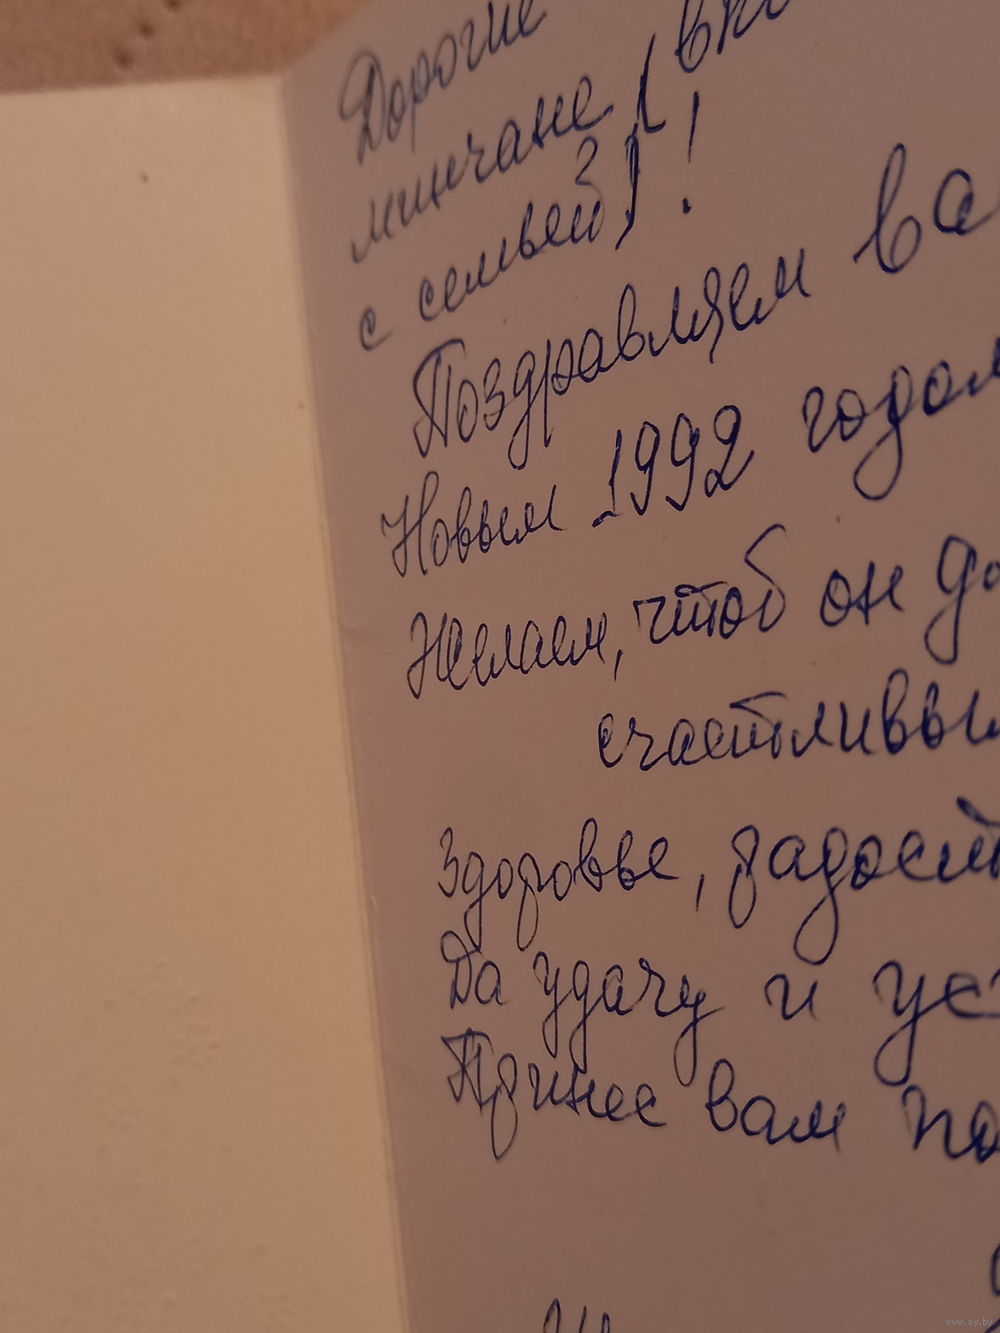 Дорогие
минчане (
с семьёй)!
Поздравляем ва
Новым 1992 годом
Желаем, чтоб он до
счастливым
Здоровье, радость
Да удачу и ус
Принес вам по
www.ay.by